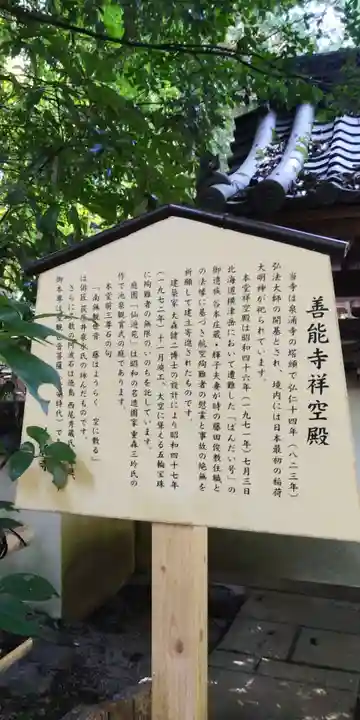 善能寺祥空殿
当寺は泉涌寺の塔頭で弘仁十四年(八二三年)
弘法大師の開基とされ、境内には日本最初の稲荷
大明神が祀られています。
本堂祥空殿は昭和四十六年(一九七一年)七月三日
北海道横津岳において遭難した「ばんだい号」の
御遺族 谷本庄蔵・輝子夫妻が時の藤田俊教住職と
の法縁に基づき航空殉難者の慰霊と事故の絶無を
祈願して建立寄進されたものです。
建築家 大森健二博士の設計により昭和四十七年
(一九七二年)十一月竣工、大空に聳える五輪宝珠
に殉難者の無限のいのちを託しています。
庭園「仙遊苑」は昭和の名造園家重森三玲氏の
作で池泉観賞式の庭であります。
本堂前三尊石の句
「南無観世音 藤はようらく 空に散る」
は俳匠荻原井泉水氏の詠んだものです。